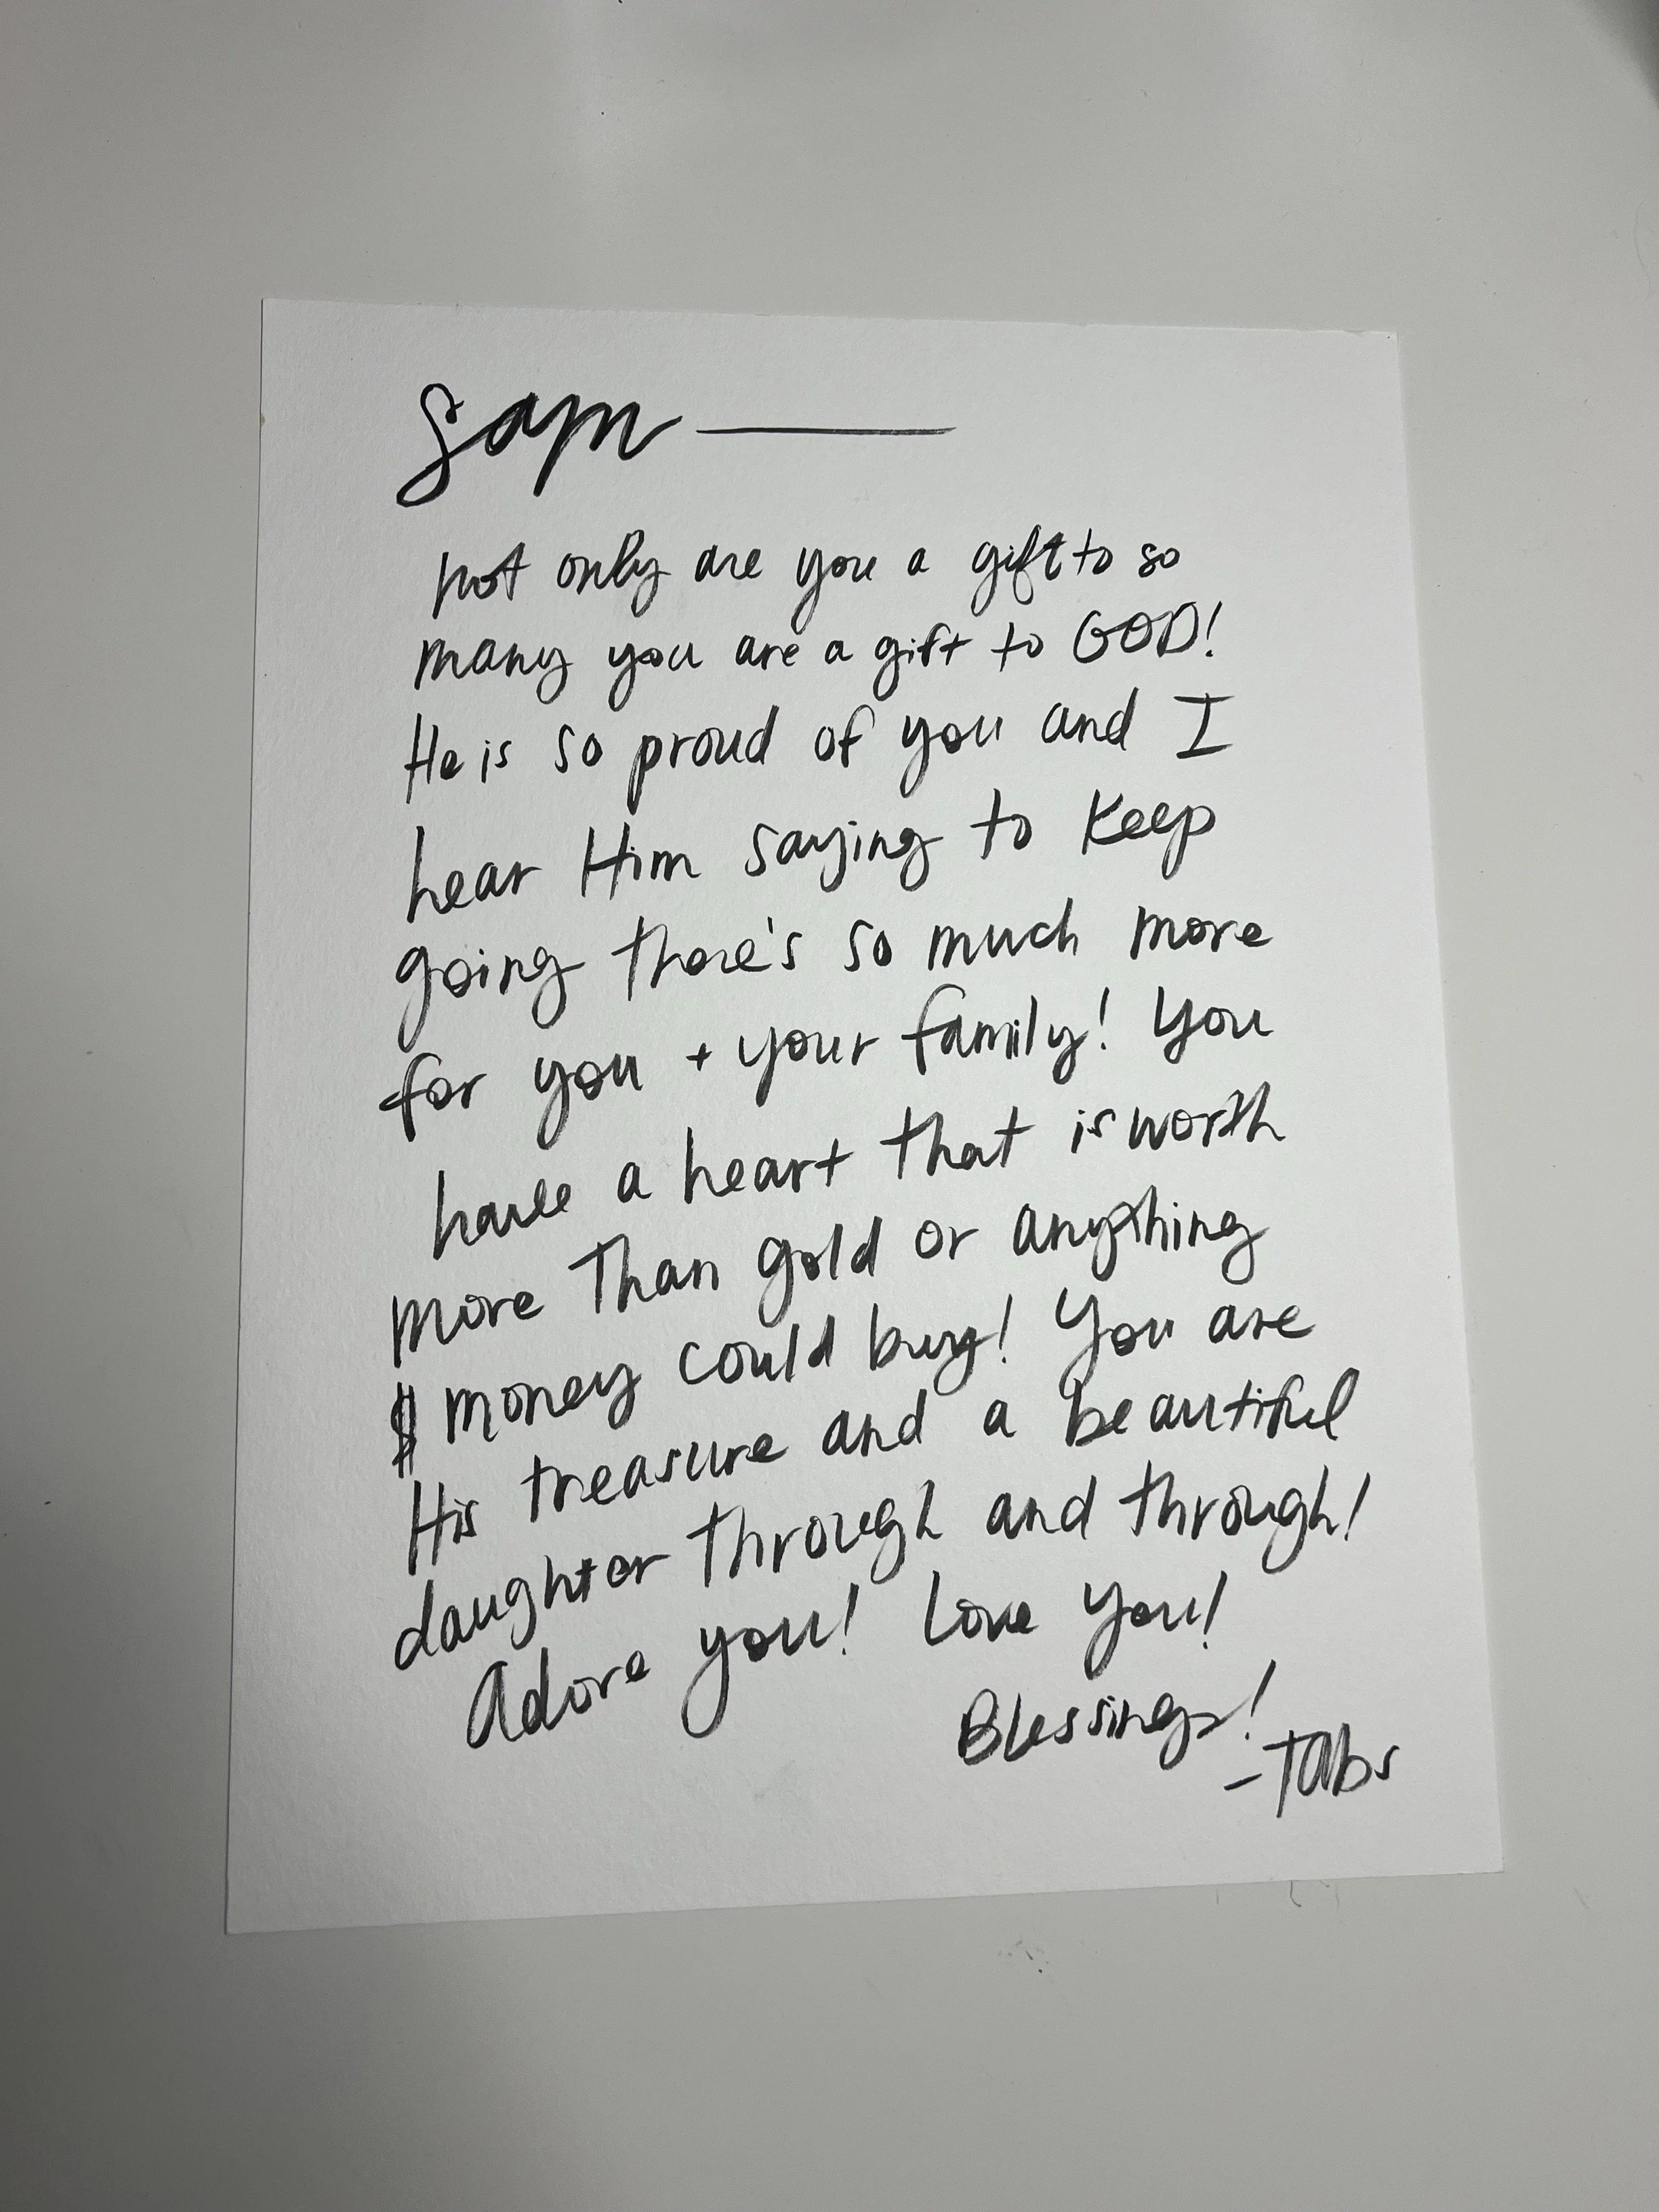 Sam —
not only are you a gift to so
many you are a gift to GOD!
He is so proud of you and I
hear Him saying to keep
going there's so much more
for you + your family! You
have a heart that is worth
more than gold or anything
$ money could buy! You are
His treasure and a beautiful
daughter through and through!
Adore you! Love you!
Blessings!
- Tabs